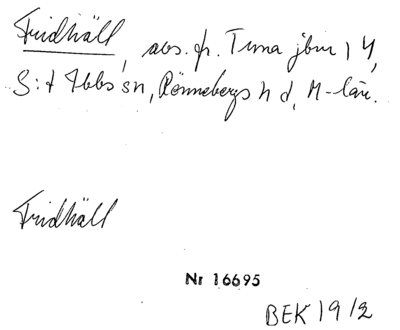 Fridhäll, avs. fr. Tuna jbm 1 4,
S:t Ibbs sn, Rönnebergs hd, M-län.
Fridhäll
Nr 16695
BEK 19/2